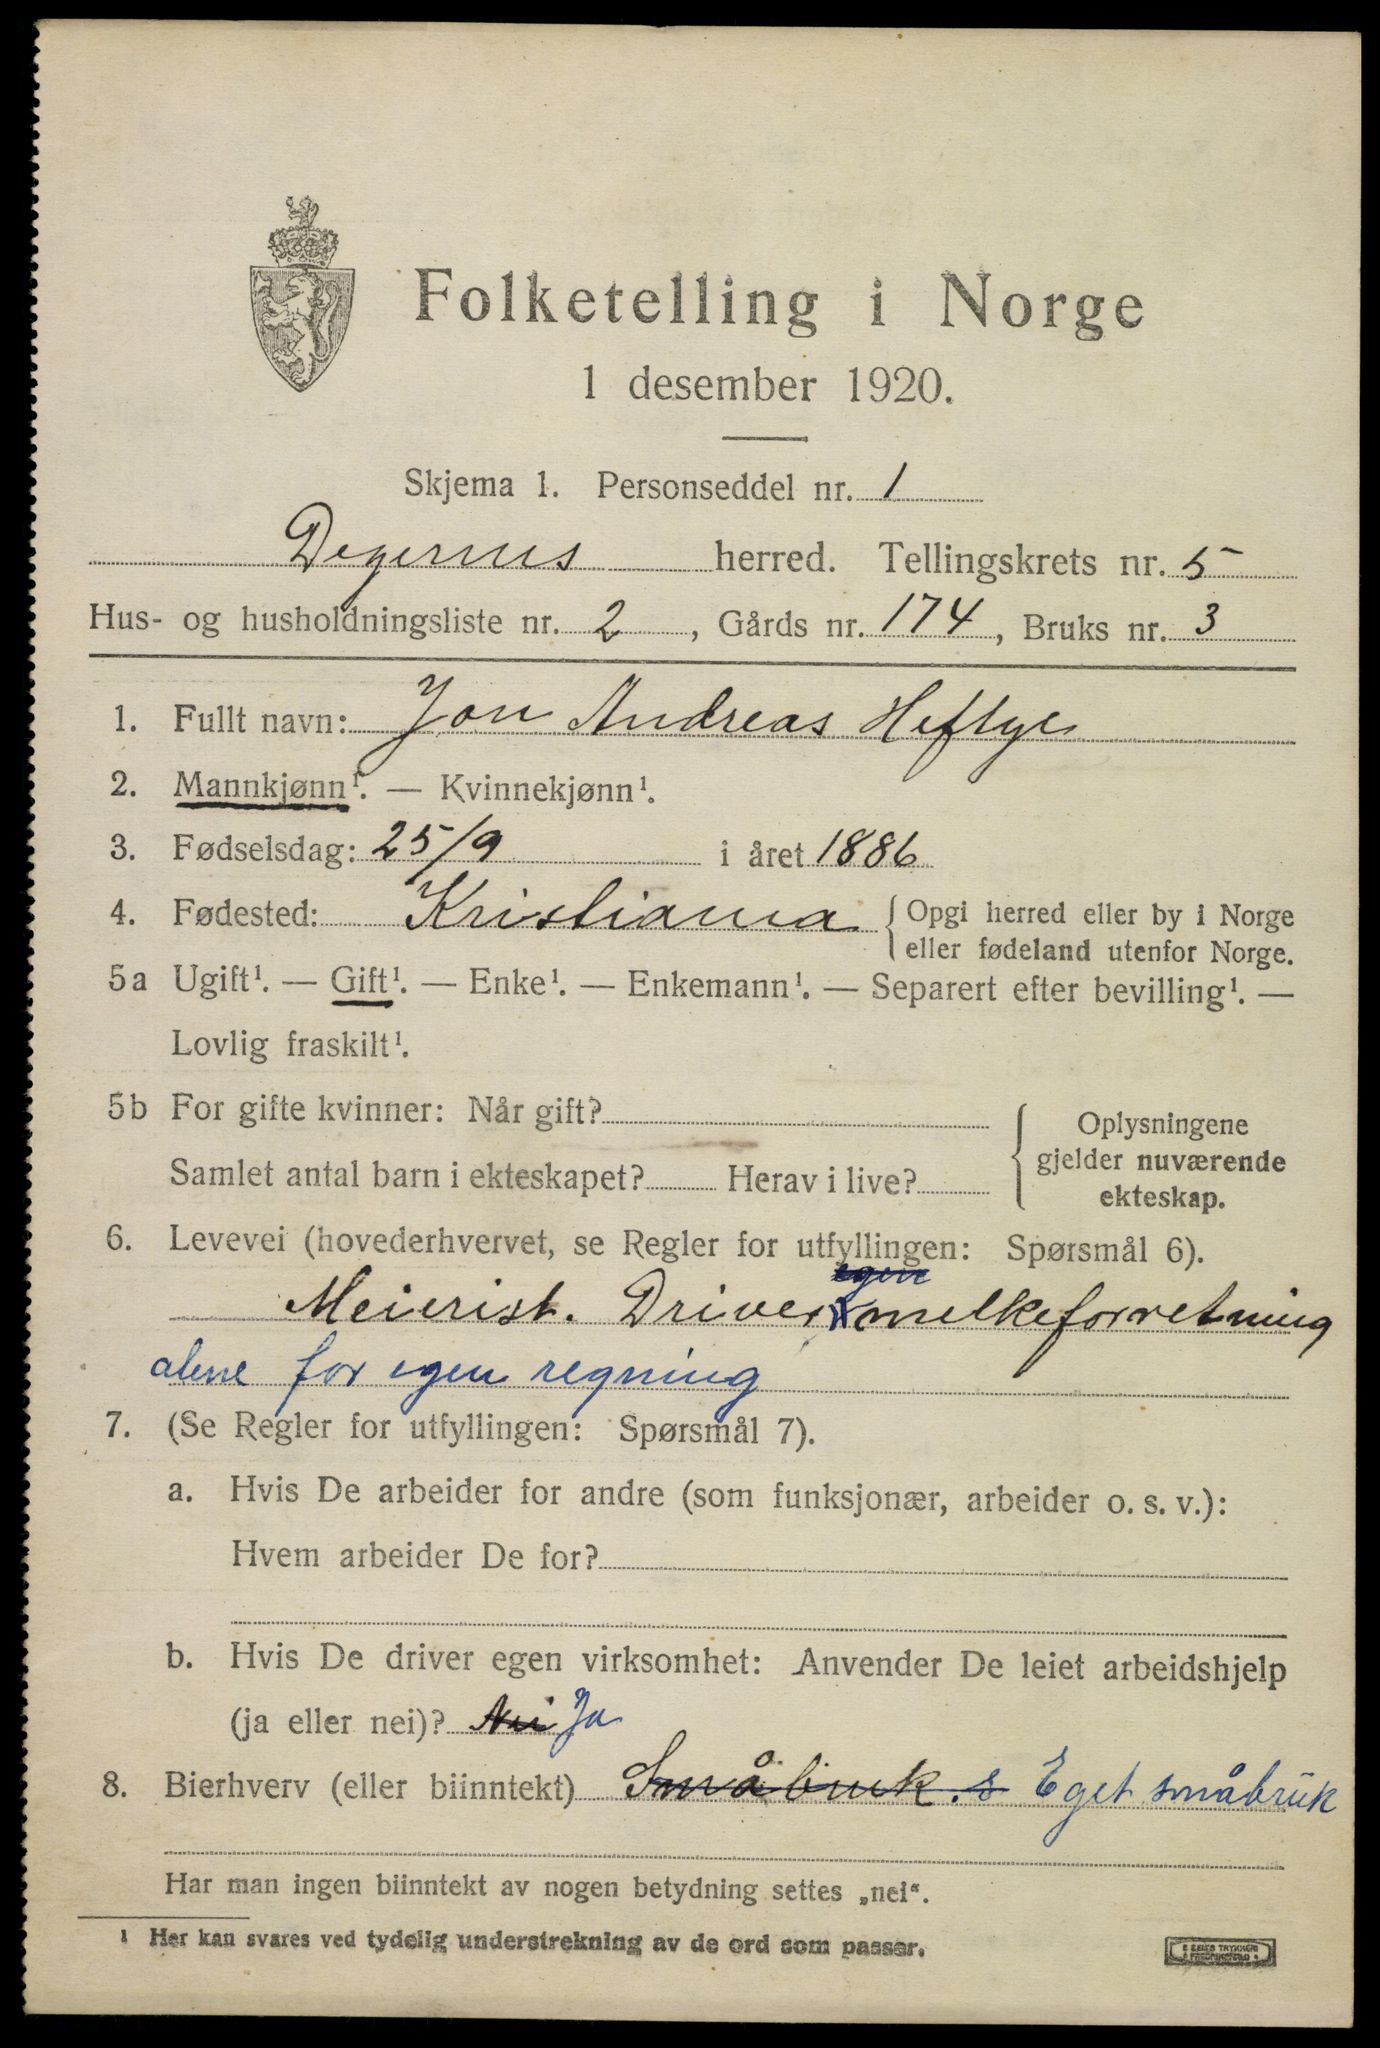 Folketelling i Norge
1 desember 1920.
Skjema 1. Personseddel nr. 1
Degernes herred. Tellingskrets nr. 5
Hus- og husholdningsliste nr. 2, Gårds nr. 174, Bruks nr. 3
1. Fullt navn: Jon Andreas Heftye
2. Mannkjønn¹. — Kvinnekjønn¹.
3. Fødselsdag: 25/9 i året 1886
4. Fødested: Kristiania { Opgi herred eller by i Norge
eller fødeland utenfor Norge.
5a Ugift¹. — Gift¹. — Enke¹. — Enkemann¹. — Separert efter bevilling¹. —
Lovlig fraskilt¹.
5b For gifte kvinner: Når gift?
Samlet antal barn i ekteskapet? Herav i live?
{ Oplysningene
gjelder nuværende
ekteskap.
6. Levevei (hovederhvervet, se Regler for utfyllingen: Spørsmål 6).
egen
Meierist. Driver melkeforretning
alene for egen regning
7. (Se Regler for utfyllingen: Spørsmål 7).
a. Hvis De arbeider for andre (som funksjonær, arbeider o. s. v.):
Hvem arbeider De for?
b. Hvis De driver egen virksomhet: Anvender De leiet arbeidshjelp
(ja eller nei)? Nei Ja
8. Bierhverv (eller biinntekt) Småbruk. s Eget småbruk
Har man ingen biinntekt av nogen betydning settes „nei“.
¹ Her kan svares ved tydelig understrekning av de ord som passer.